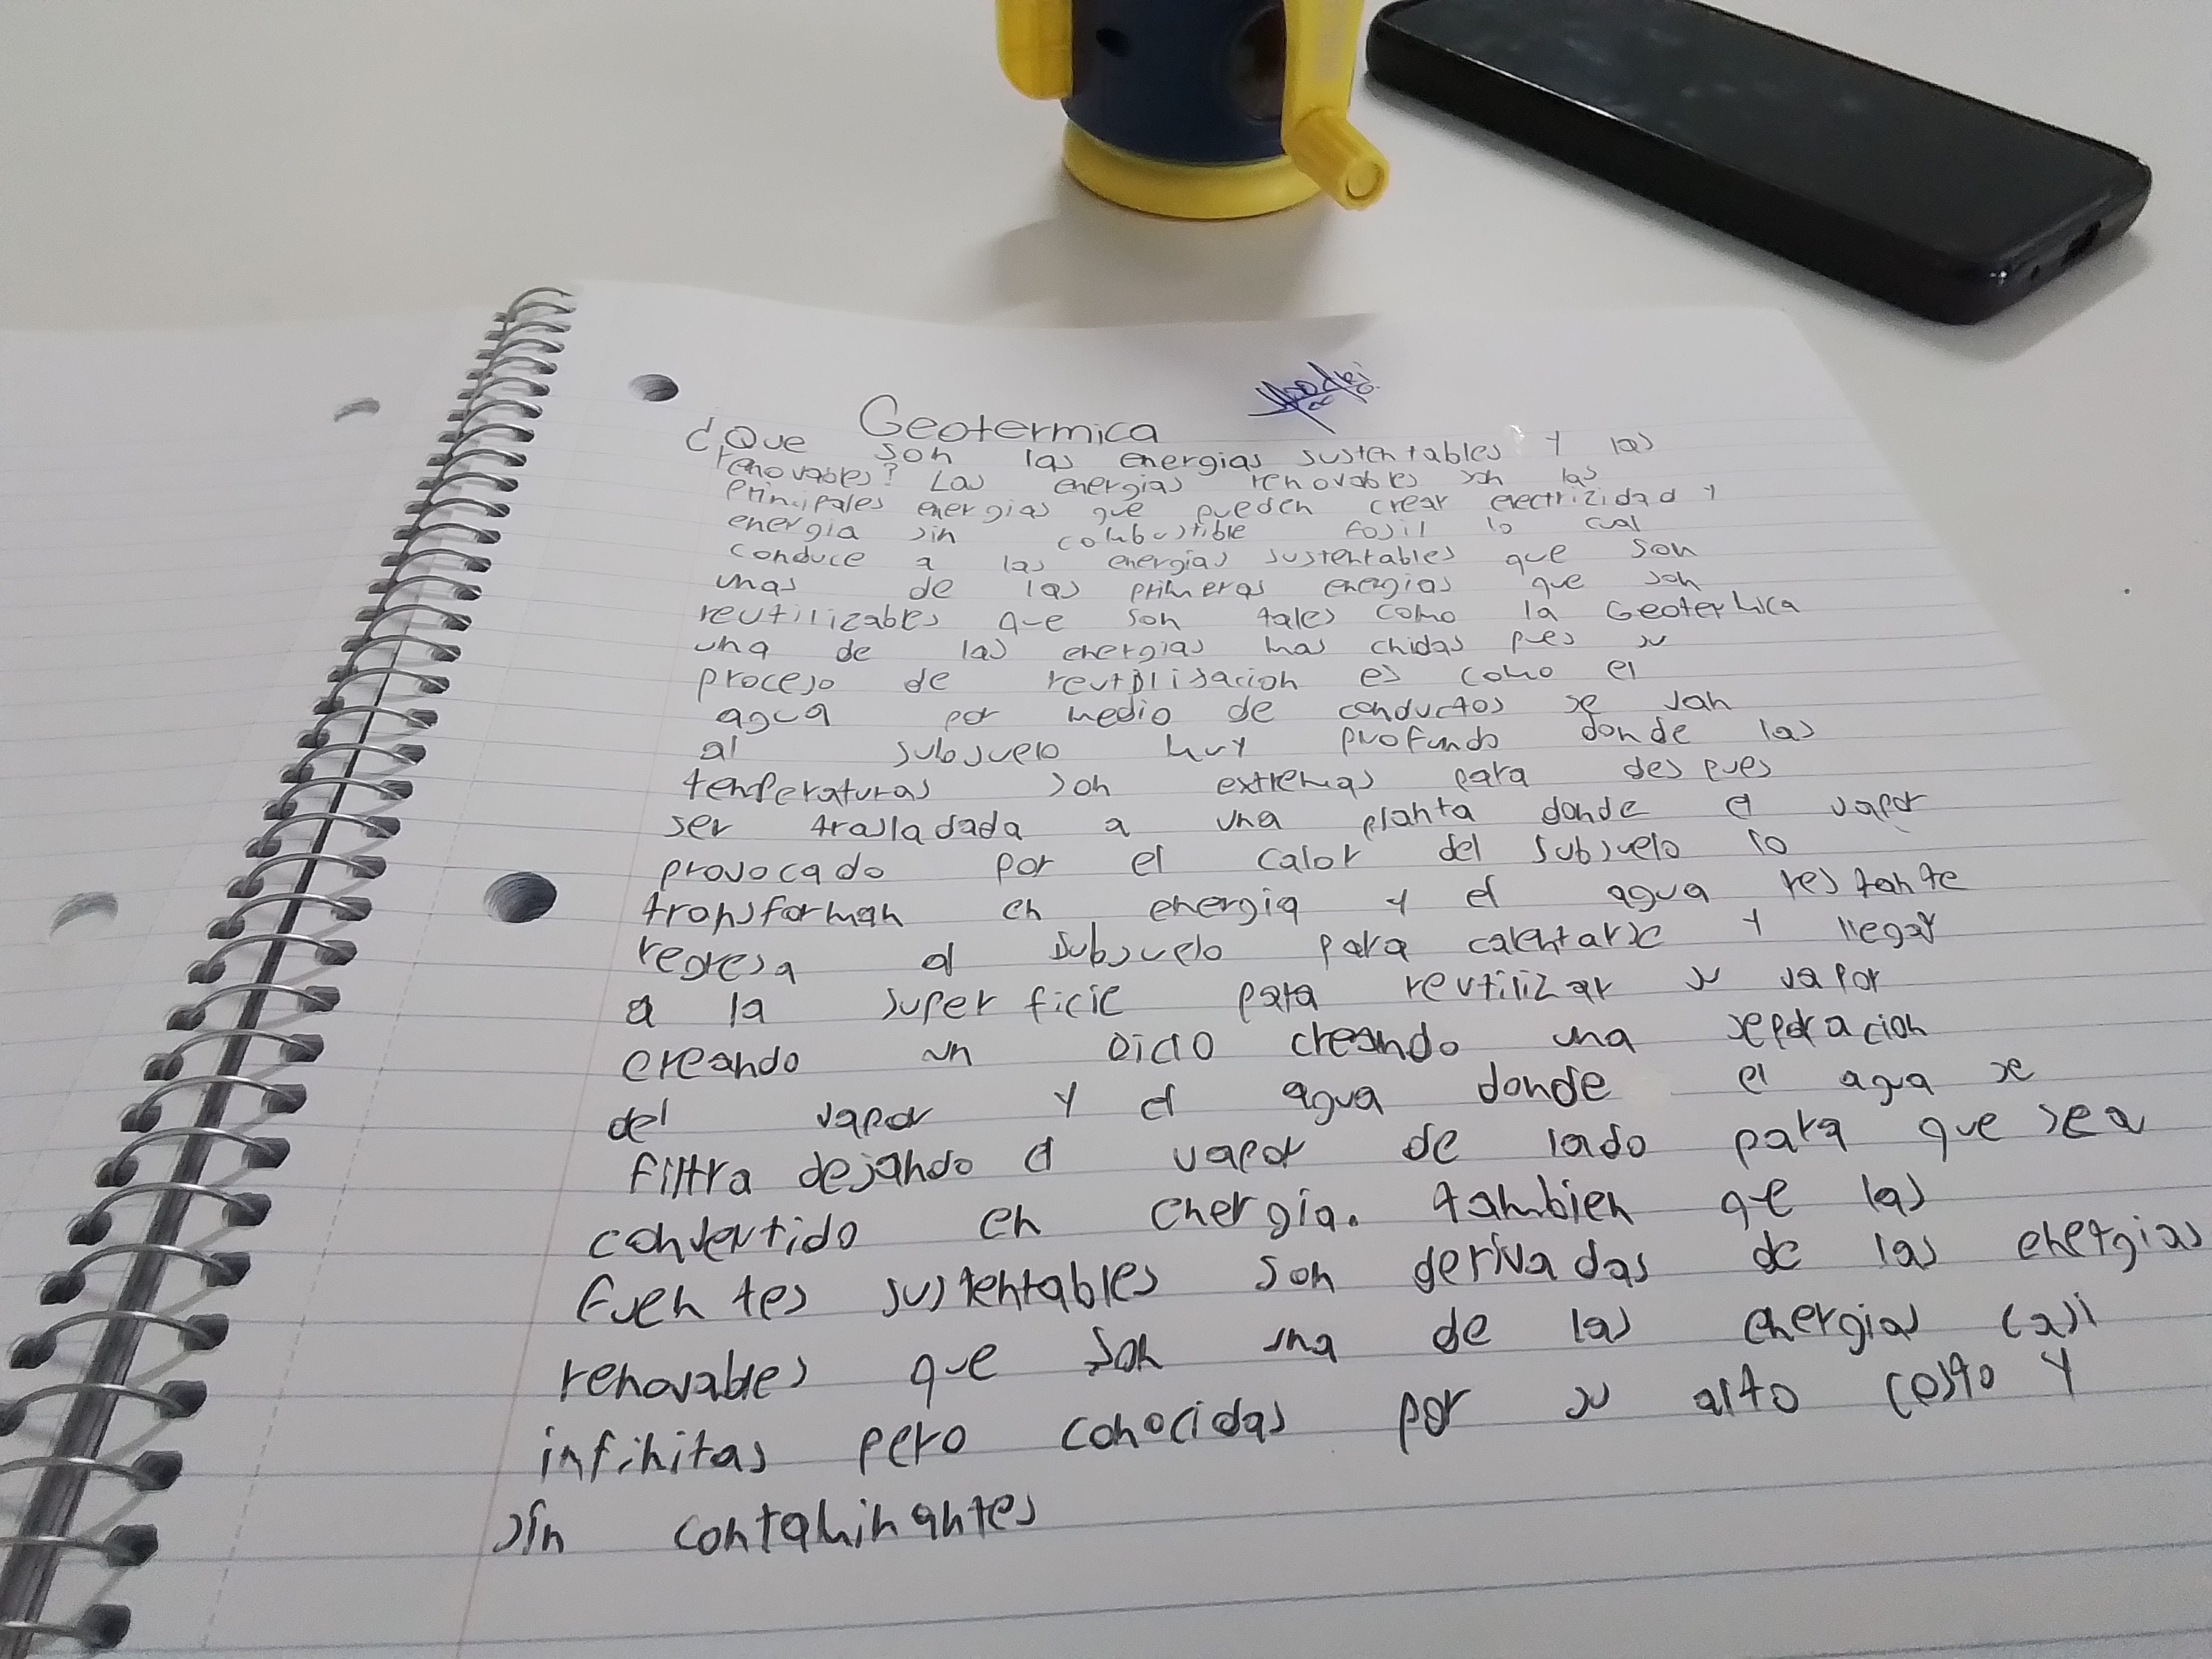 Geotermica
¿Que son las energias sustentables y las
renovables? Las energias renovables son las
principales energias que pueden crear electrizidad y
energia sin combustible fosil lo cual
conduce a las energias sustentables que son
unas de las primeras energias que son
reutilizables que son tales como la Geotermica
una de las energias mas chidas pues su
proceso de reutilisacion es como el
agua por medio de conductos se van
al subsuelo muy profundo donde las
temperaturas son extremas para despues
ser trasladada a una planta donde el vapor
provocado por el calor del subsuelo lo
transforman en energia y el agua restante
regresa al subsuelo para calentarse y llegar
a la superficie para reutilizar su vapor
creando un ciclo creando una separacion
del vapor y el agua donde el agua se
filtra dejando el vapor de lado para que sea
convertido en energia. tambien que las
fuentes sustentables son derivadas de las energias
renovables que son una de las energias casi
infinitas pero conocidas por su alto costo y
sin contaminantes